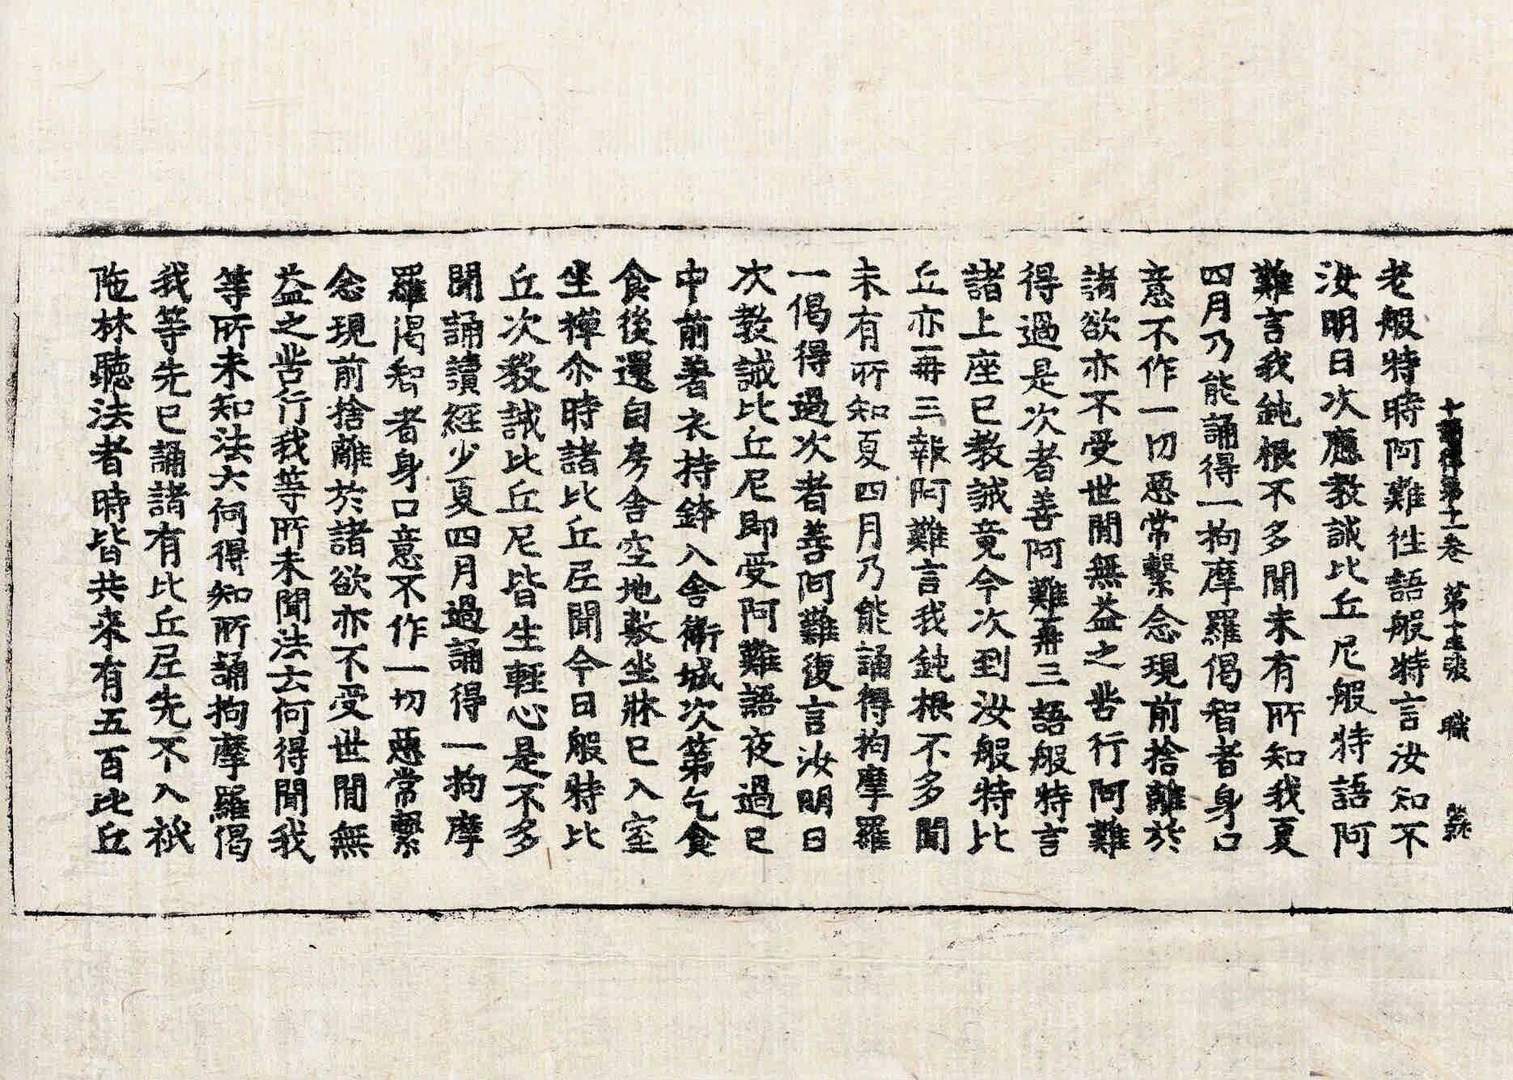 十誦律第十一卷 第十五張 職
老般特時阿難往語般特言汝知不
汝明日次應教誡比丘尼般特語阿
難言我鈍根不多聞未有所知我夏
四月乃能誦得一拘摩羅偈智者身口
意不作一切惡常繫念現前捨離於
諸欲亦不受世閒無益之苦行阿難
得過是次者善阿難再三語般特言
諸上座已教誡竟今次到汝般特比
丘亦再三報阿難言我鈍根不多聞
未有所知夏四月乃能誦得拘摩羅
一偈得過次者善阿難復言汝明日
次教誡比丘尼即受阿難語夜過已
中前著衣持鉢入舍衛城次第乞食
食後還自房舍空地敷坐牀已入室
坐禪尒時諸比丘尼聞今日般特比
丘次教誡比丘尼皆生輕心是不多
聞誦讀經少夏四月過誦得一拘摩
羅偈智者身口意不作一切惡常繫
念現前捨離於諸欲亦不受世閒無
益之苦行我等所未聞法云何得聞我
等所未知法云何得知所誦拘摩羅偈
我等先已誦諸有比丘尼先不入祇
陁林聽法者時皆共來有五百比丘